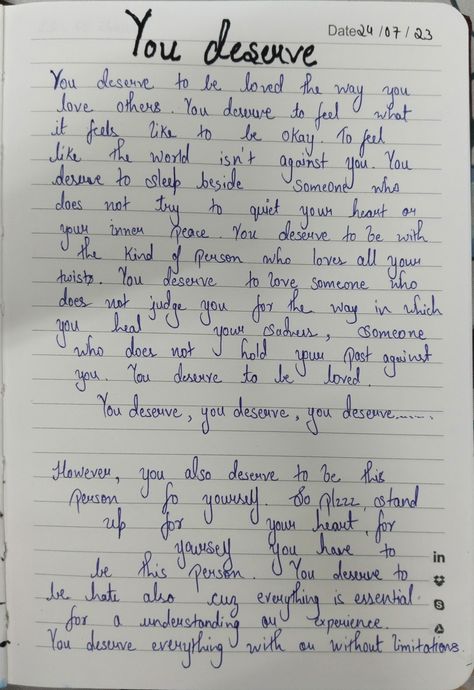 You deserve
Date 24/07/23
You deserve to be loved the way you
love others. You deserve to feel what
it feels like to be okay. To feel
like the world isn't against you. You
deserve to sleep beside someone who
does not try to quiet your heart or
your inner peace. You deserve to be with
the kind of person who loves all your
twists. You deserve to love someone who
does not judge you for the way in which
you heal your sadness, someone
who does not hold your past against
you. You deserve to be loved.
You deserve, you deserve, you deserve......
However, you also deserve to be this
person fo yourself. So plzzz, stand
up for your heart, for
yourself you have to
be this person. You deserve to
be hate also cuz everything is essential
for a understanding or experience.
You deserve everything with or without limitations
in